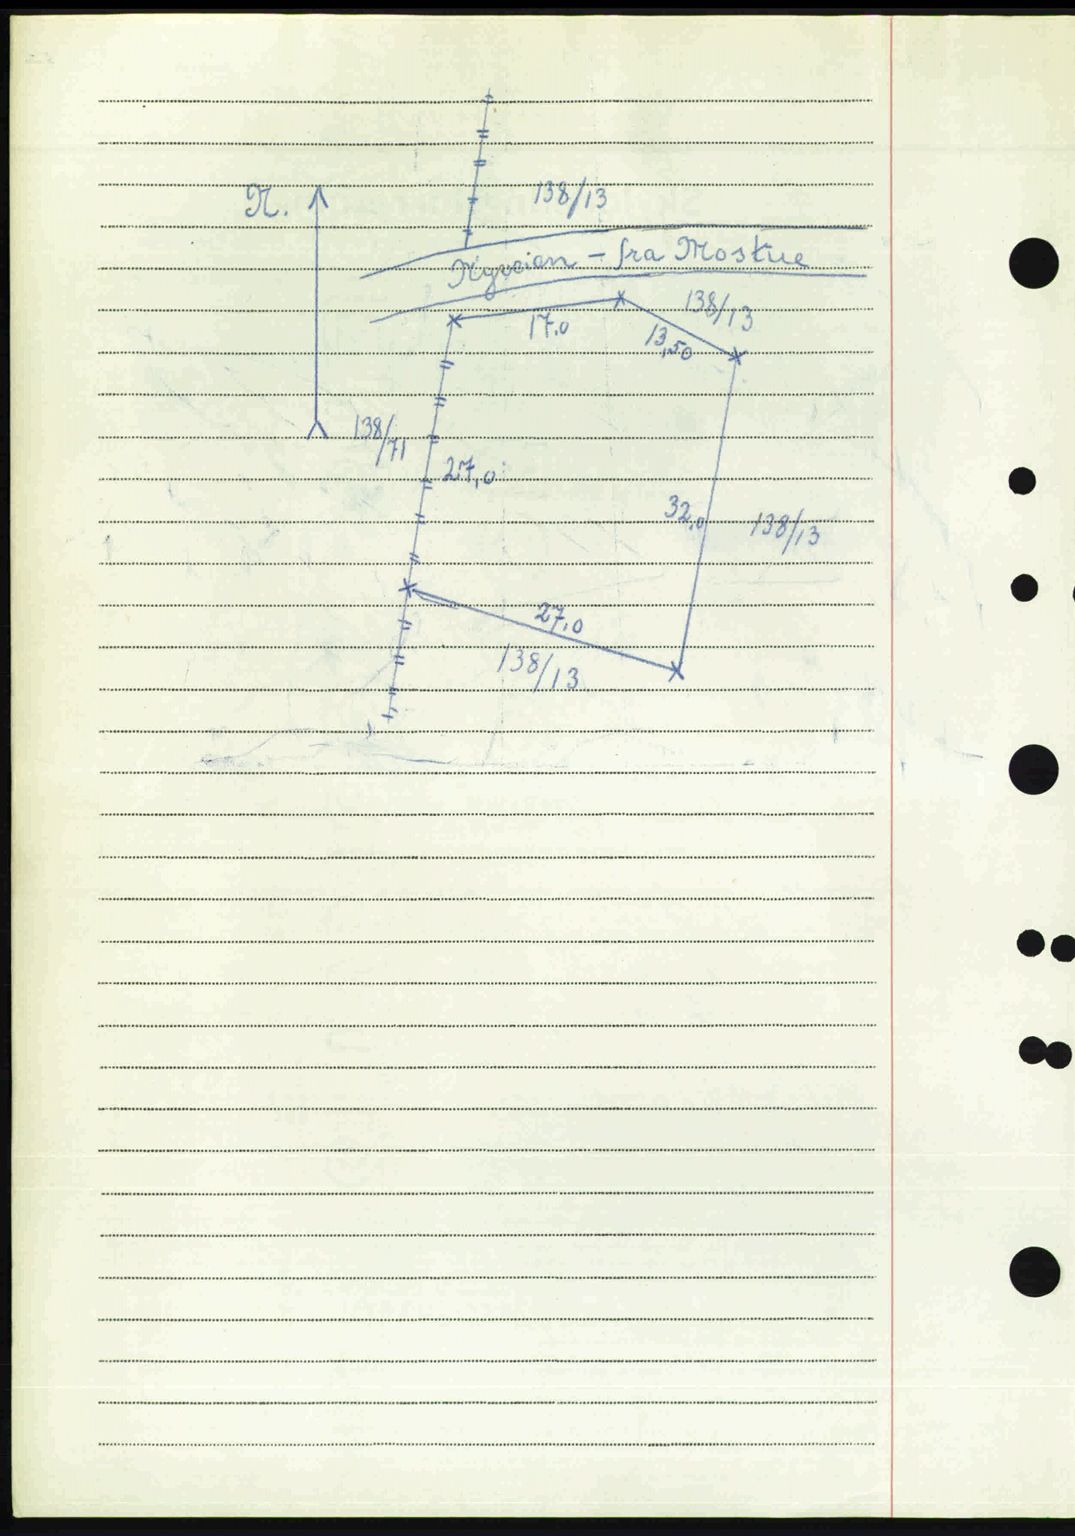 N.
138/13
Nyveien - fra Moskue
138/13
17,0
13,50
138/71
27,0
32,0
138/13
27,0
138/13